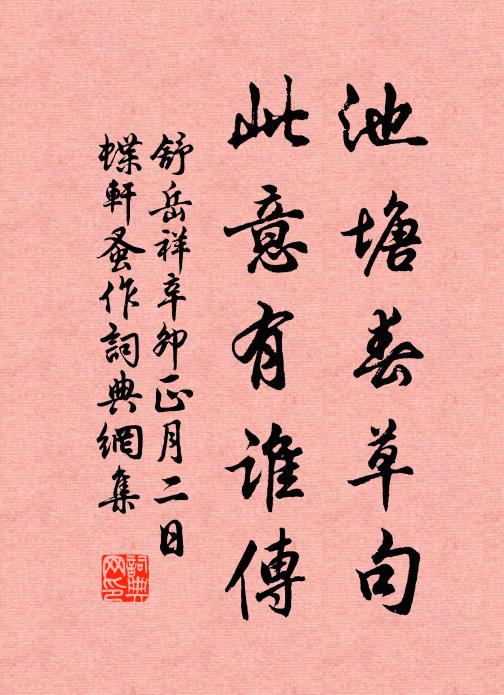 池塘春草句
此意有誰傳
舒岳祥辛卯正月二日
蝶軒蚤作詞典網集
詞典
网印